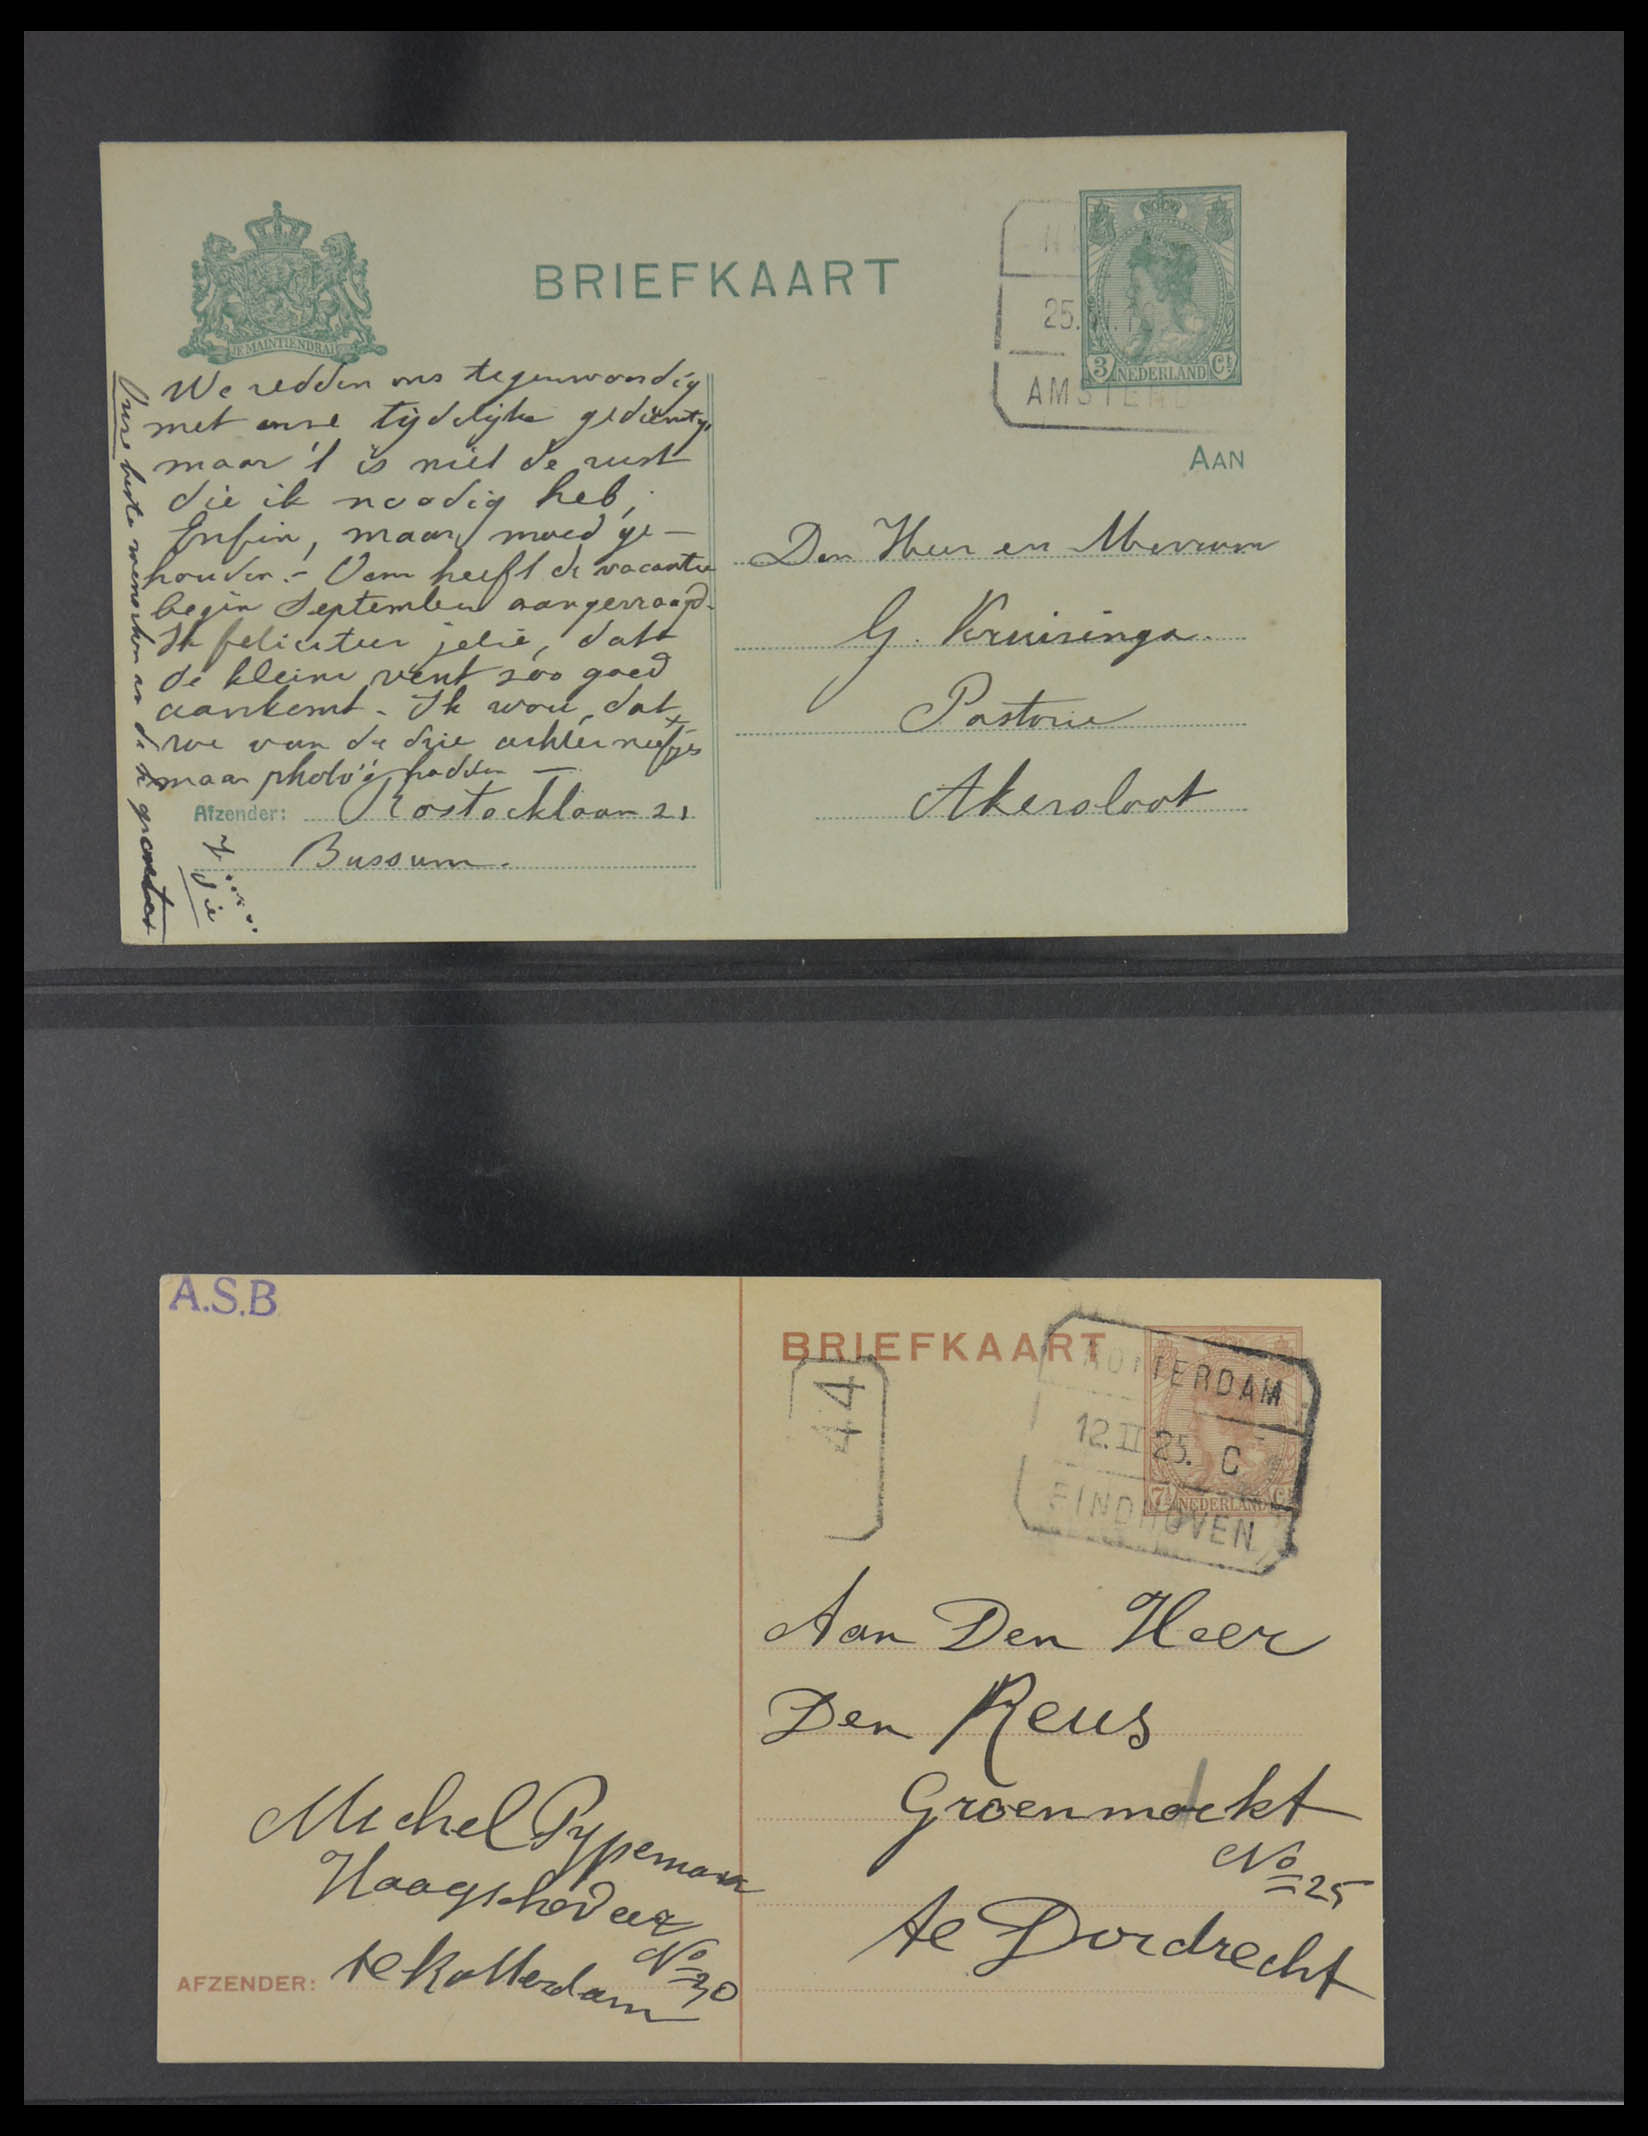 BRIEFKAART
JE MAINTIENDRAI
25.
AMSTERD
3 NEDERLAND Ct
AAN
We redden ons tegenwoordig
met onze tijdelijke gedienstige,
maar 't is niet de rust
die ik noodig heb,
Enfin, maar moed ge-
houden. - Oom heeft de vacantie
begin September aangevraagd.
Ik feliciteer jelie, dat
de kleine vent zoo goed
aankomt. - Ik wou, dat
we van de drie achterneefjes
maar photo's hadden —
Afzender: Rostocklaan 21
Bussum.
Onze beste wenschen en de groeten
Den Heer en Mevrouw
G. Kruisinga.
Pastorie
Akersloot
A.S.B
BRIEFKAART
44
ROTTERDAM
12.II 25. C
EINDHOVEN
7½ NEDERLAND Ct
Aan Den Heer
Den Reus
Groenmarkt
No 25
te Dordrecht
Michel Pypeman
Haagscheveer
No 30
AFZENDER: te Rotterdam